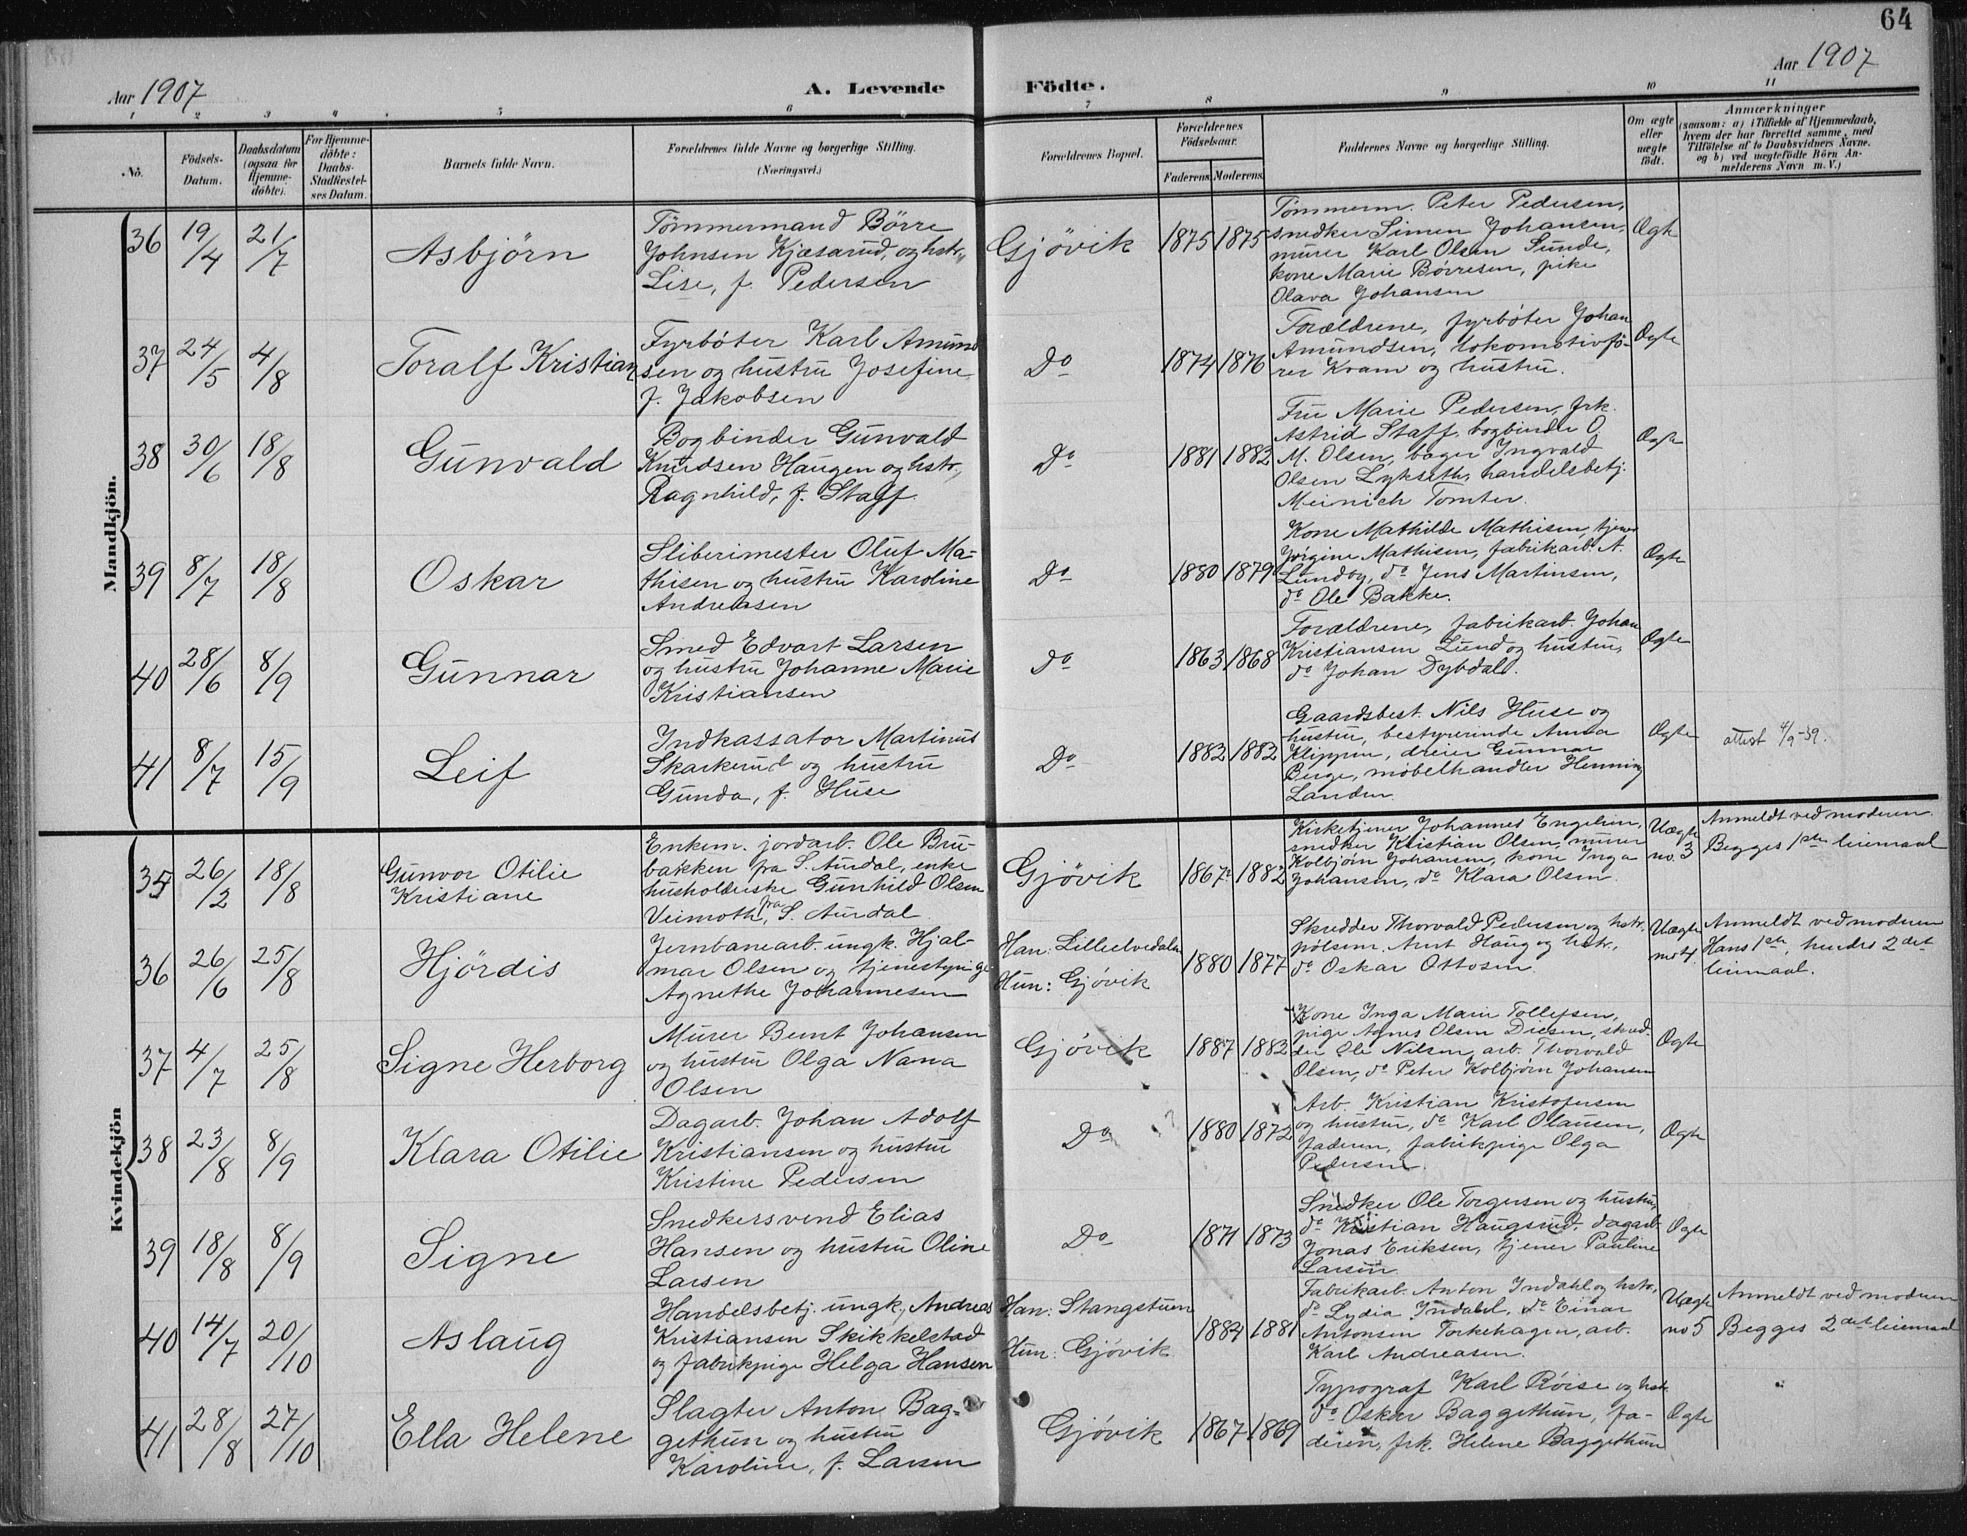 64
Aar 1907
A. Levende
Födte.
Aar 1907
1 2 3 4 5 6 7 8 9 10 11
No.
Födsels-
Datum.
Daabsdatum
(ogsaa for
Hjemme-
döbte).
For Hjemme-
döbte:
Daabs-
Stadfæstel-
ses Datum.
Barnets fulde Navn.
Forældrenes fulde Navne og borgerlige Stilling.
(Næringsvei.)
Forældrenes Bopæl.
Forældrenes
Födselsaar.
Faderens
Moderens
Faddernes Navne og borgerlige Stilling.
Om ægte
eller
uægte
födt.
Anmærkninger
(saasom: a) i Tilfælde af Hjemmedaab,
hvem der har forrettet samme, med
Tilföielse af to Daabsvidners Navne.
og b) ved uægtefödte Börn An-
melderens Navn m. V.)
Mandkjön.
36 19/4 21/7 Asbjörn
Tømmermand Børre
Johnsen Kjæsarud, og hstr.
Lise, f. Pedersen
Gjøvik 1875 1875
Tømmerm. Peter Pedersen,
snedker Simen Johansen,
murer Karl Olsen Sunde,
kone Marie Børresen, pike
Olava Johansen
Ægte
37 24/5 4/8 Toralf Kristian
Fyrbøter Karl Amund
sen og hustru Josefine,
f. Jakobsen
Do 1874 1876
Forældrene, fyrbøter Johan
Amundsen, lokomotivfø-
rer Kvam og hustru.
Ægte
38 30/6 18/8 Gunvald
Bogbinder Gunvald
Knudsen Haugen og hstr.
Ragnhild, f. Staff
Do 1881 1882
Fru Marie Pedersen, frk.
Astrid Staff, bogbinder O.
M. Olsen, bager Ingvald
Olsen Lykseth, handelsbetj.
Meinich Tomter.
Ægte
39 8/7 18/8 Oskar
Sliberimester Oluf Ma-
thisen og hustru Karoline
Andreasen
Do 1880 1879
Kone Mathilde Mathisen, tjener
Jørgine Mathisen, fabrikarb. A.
Lundby, do Jens Martinsen,
do Ole Bakke.
Ægte
40 28/6 8/9 Gunnar
Smed Edvart Larsen
og hustru Johanne Marie
Kristiansen
Do 1863 1868
Forældrene, fabrikarb. Johan
Kristiansen Lund og hustru,
do Johan Dybdal.
Ægte
41 8/7 15/9 Leif
Indkassator Martinus
Skarkerud og hustru
Gunda, f. Huse
Do 1882 1882
Gaardsbest. Nils Huse og
hustru, bestyrerinde Anna
Klippen, dreier Gunnar
Berge, møbelhandler Henning
Landen
Ægte
attest 4/9-39.
Kvindekjön
35 26/2 18/8 Gunvor Otilie
Kristiane
Enkem. jordarb. Ole Bru-
bakken fra S. Aurdal, enke
husholderske Gunhild Olsen
Veimoth, fra S. Aurdal
Gjøvik 1867 1882
Kirketjener Johannes Engelien,
snedker Kristian Olsen, murer
Kolbjørn Johansen, kone Inga
Johansen, do Klara Olsen
Uægte
no. 3
Anmeldt ved moderen
Begges 1ste leiermaal
36 26/6 25/8 Hjördis
Jernbanearb. ungk. Hjal-
mar Olsen og tjenestepige
Agnethe Johannesen
Han: Lilleelvedalen
Hun: Gjøvik
1880 1877
Skrædder Thorvald Pedersen og hstr.
pølsem. Arnt Haug og hstr.,
do Oskar Ottosen
Uægte
no 4.
Anmeldt ved moderen
Hans 1ste, hendes 2det
leiermaal.
37 4/7 25/8 Signe Herborg
Murer Bernt Johansen
og hustru Olga Nana
Olsen
Gjøvik 1887 1882
Kone Inga Marie Tollefsen,
pige Agnes Olsen Diesen, skræd-
der Ole Nilsen, arb. Thorvald
Olsen, do Peter Kolbjørn Johansen
Ægte
38 23/8 8/9 Klara Otilie
Dagarb. Johan Adolf
Kristiansen og hustru
Kristine Pedersen
Do 1880 1872
Arb. Kristian Kristofersen
og hustru, do Karl Olausen,
faderen, fabrikpige Olga
Pedersen.
Ægte
39 18/8 8/9 Signe
Snedkersvend Elias
Hansen og hustru Oline
Larsen
Do 1871 1873
Snedker Ole Torgersen og hustru,
do Kristian Haugsrud, dagarb.
Jonas Eriksen, tjener Pauline
Larsen.
Ægte
40 14/7 20/10 Aslaug
Handelsbetj. ungk. Andreas
Kristiansen Skikkelstad
og fabrikpige Helga Hansen
Han: Stangstuen
Hun: Gjøvik
1884 1881
Fabrikarb. Anton Indahl og hstr.,
do Lydia Indahl, do Einar
Antonsen Torkehagen, arb.
Karl Andreasen.
Uægte
no 5
Anmeldt ved moderen
Begges 2det leiermaal
41 28/8 27/10 Ella Helene
Slagter Anton Bag-
gethun og hustru
Karoline, f. Larsen
Gjøvik 1867 1869
Typograf Karl Røise og hstr.
do Oskar Baggethun, fa-
deren, frk. Helene Baggethun
Ægte